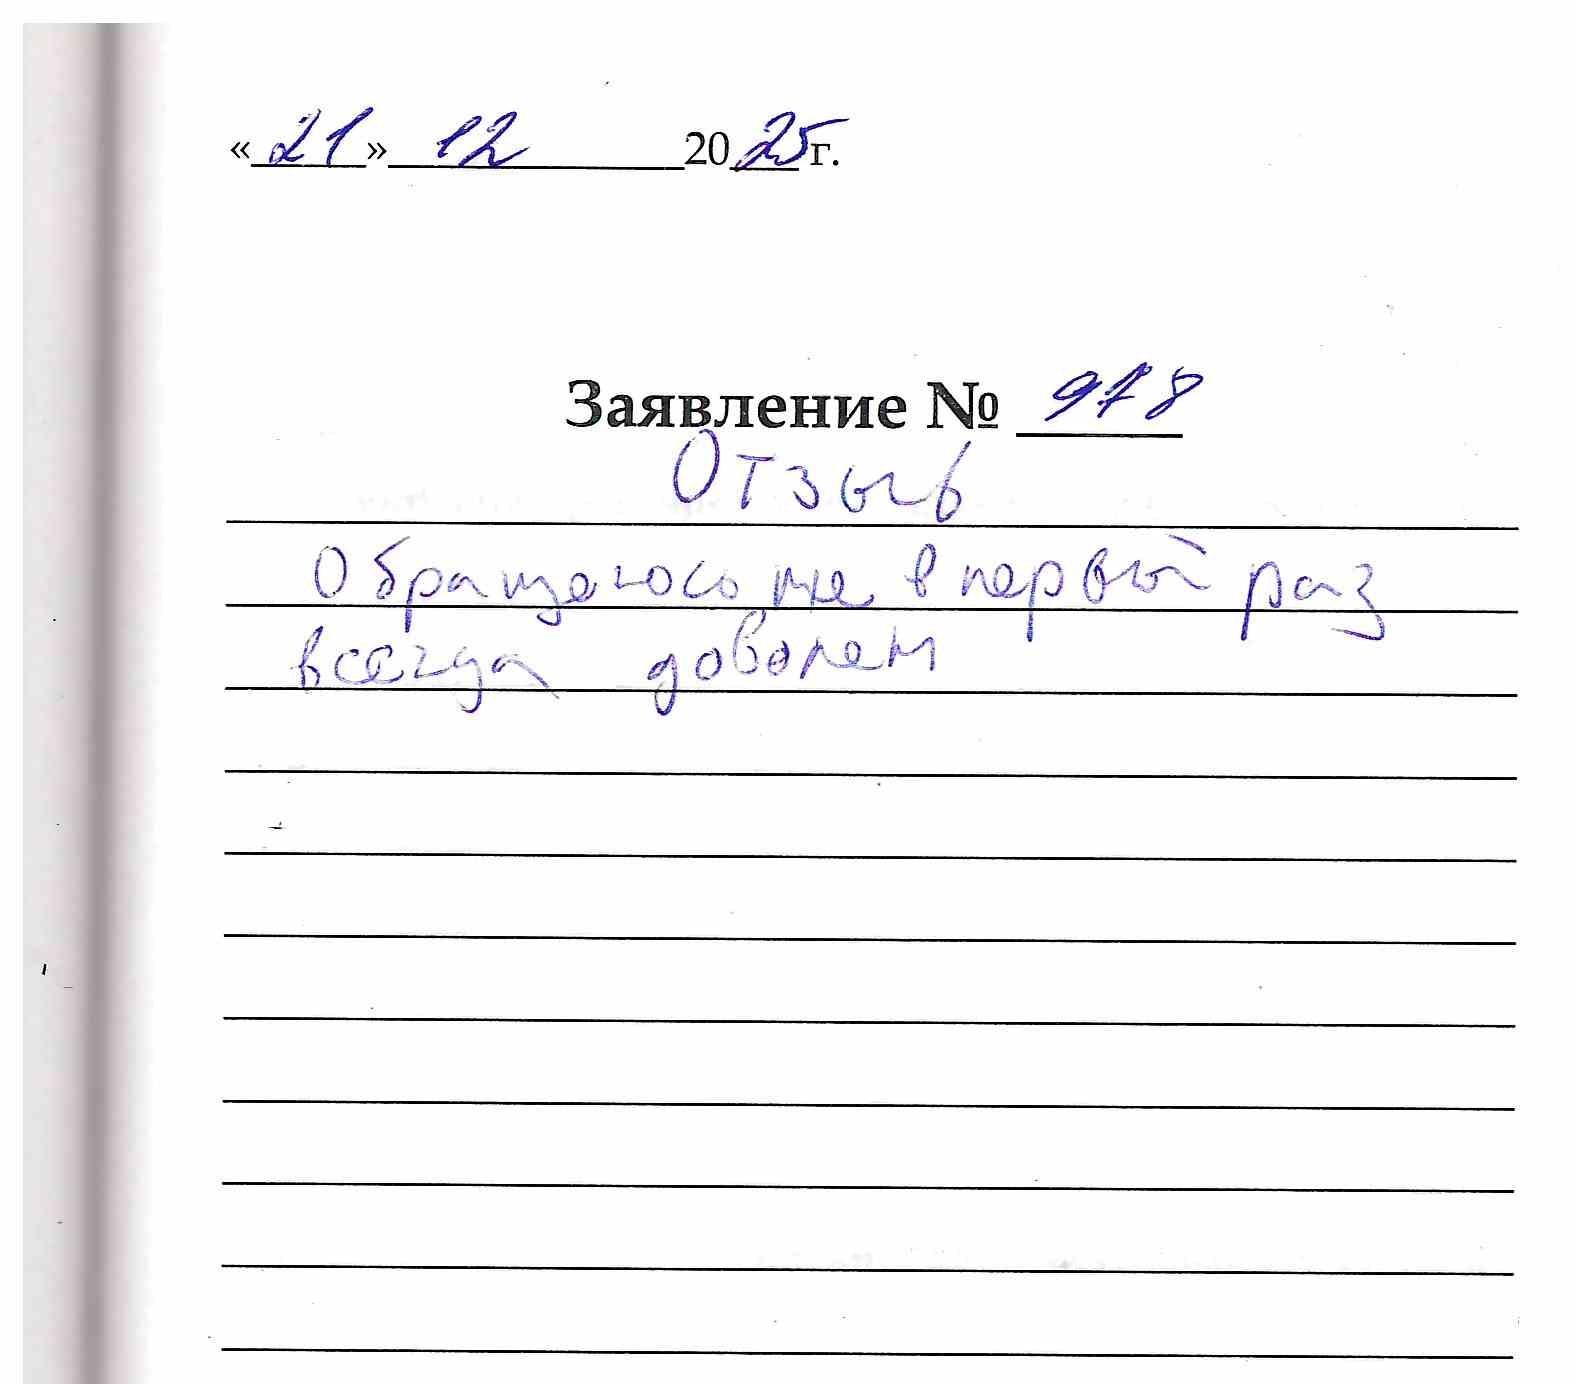 «21» 12 2025 г.
Заявление № 978
Отзыв
Обращаюсь не в первый раз
всегда доволен